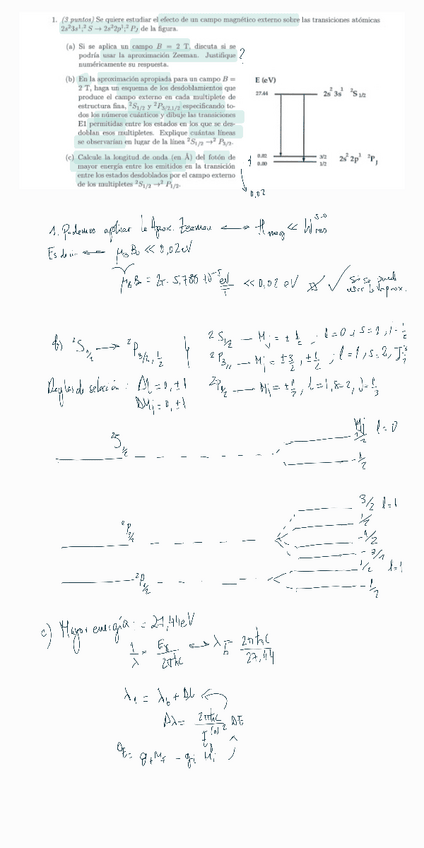 1. (3 puntos) Se quiere estudiar el efecto de un campo magnético externo sobre las transiciones atómicas
2s²3s¹;²S → 2s²2p¹;²P_J de la figura.
(a) Si se aplica un campo B = 2 T, discuta si se
podría usar la aproximación Zeeman. Justifique
numéricamente su respuesta.
?
(b) En la aproximación apropiada para un campo B =
2 T, haga un esquema de los desdoblamientos que
produce el campo externo en cada multiplete de
estructura fina, ²S₁/₂ y ²P₃/₂,₁/₂ especificando to-
dos los números cuánticos y dibuje las transiciones
E1 permitidas entre los estados en los que se des-
doblan esos multipletes. Explique cuántas líneas
se observarían en lugar de la línea ²S₁/₂ → ²P₃/₂.
(c) Calcule la longitud de onda (en Å) del fotón de
mayor energía entre los emitidos en la transición
entre los estados desdoblados por el campo externo
de los multipletes ²S₁/₂ → ²P₃/₂.
E (eV)
27.44
2s²3s¹ ²S₁/₂
0.02
0.00
3/2
1/2
2s²2p¹ ²P_J
0,02
1. Podemos aplicar la Aprox. Zeeman ⟷ H mag ≪
Es decir ⟷ μ_B B₀ ≪ 0,02 eV
μ_B B₀ = 2T · 5,788·10⁻⁵ eV/T ≪ 0,02 eV
b) ²S₁/₂ → ²P₃/₂,₁/₂
²S₁/₂ — M_j = ± 1/2 ; l=0,
²P₃/₂ — M_j = ± 3/2, ± 1/2 ; l=1,
Reglas de selección: Δl = 0, ±1
ΔM_j = 0, ±1
²P₁/₂ — M_j = ± 1/2, l=1,
²S₁/₂
M_j
1/2 l=0
-1/2
²P₃/₂
3/2 l=1
1/2
-1/2
-3/2
²P₁/₂
1/2 l=1
-1/2
c) Mayor energía = 27,44 eV
1/λ = E_γ/2πħc ⟷ λ = 2πħc/27,44
λ₁ = λ₀ + Δλ
Δλ = 2πħc ΔE